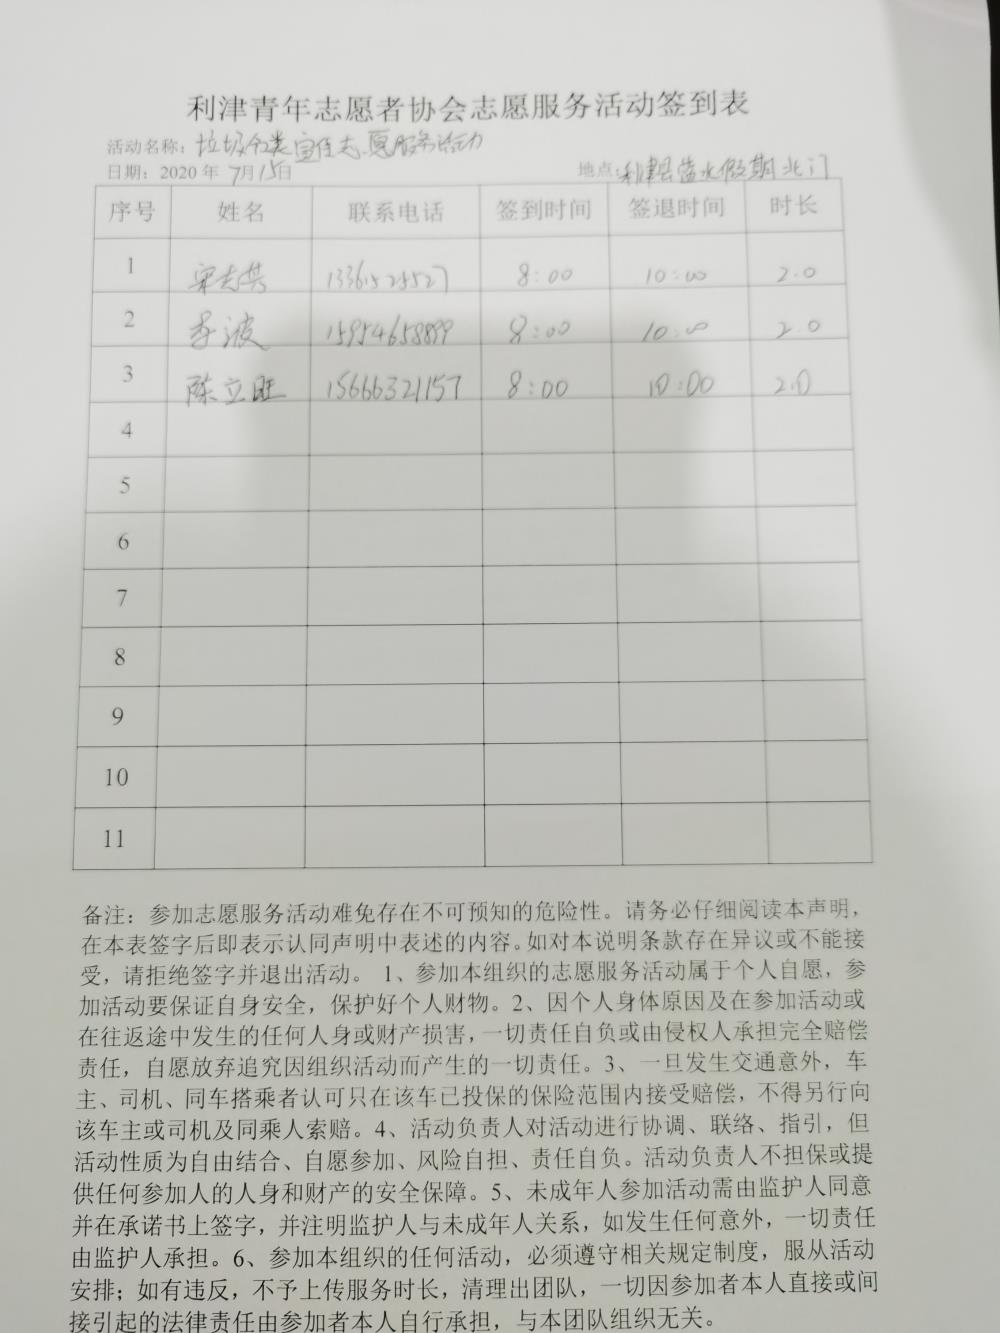 利津青年志愿者协会志愿服务活动签到表
活动名称：垃圾分类宣传志愿服务活动
日期：2020 年 7月15日 地点：利津县 水假期北门
序号 姓名 联系电话 签到时间 签退时间 时长
1 宋志英 13361525527 8:00 10:00 2.0
2 李波 15954658899 8:00 10:00 2.0
3 陈立旺 15666321157 8:00 10:00 2.0
4
5
6
7
8
9
10
11
备注：参加志愿服务活动难免存在不可预知的危险性。请务必仔细阅读本声明，
在本表签字后即表示认同声明中表述的内容。如对本说明条款存在异议或不能接
受，请拒绝签字并退出活动。 1、参加本组织的志愿服务活动属于个人自愿，参
加活动要保证自身安全，保护好个人财物。2、因个人身体原因及在参加活动或
在往返途中发生的任何人身或财产损害，一切责任自负或由侵权人承担完全赔偿
责任，自愿放弃追究因组织活动而产生的一切责任。3、一旦发生交通意外，车
主、司机、同车搭乘者认可只在该车已投保的保险范围内接受赔偿，不得另行向
该车主或司机及同乘人索赔。4、活动负责人对活动进行协调、联络、指引，但
活动性质为自由结合、自愿参加、风险自担、责任自负。活动负责人不担保或提
供任何参加人的人身和财产的安全保障。5、未成年人参加活动需由监护人同意
并在承诺书上签字，并注明监护人与未成年人关系，如发生任何意外，一切责任
由监护人承担。6、参加本组织的任何活动，必须遵守相关规定制度，服从活动
安排；如有违反，不予上传服务时长，清理出团队，一切因参加者本人直接或间
接引起的法律责任由参加者本人自行承担，与本团队组织无关。